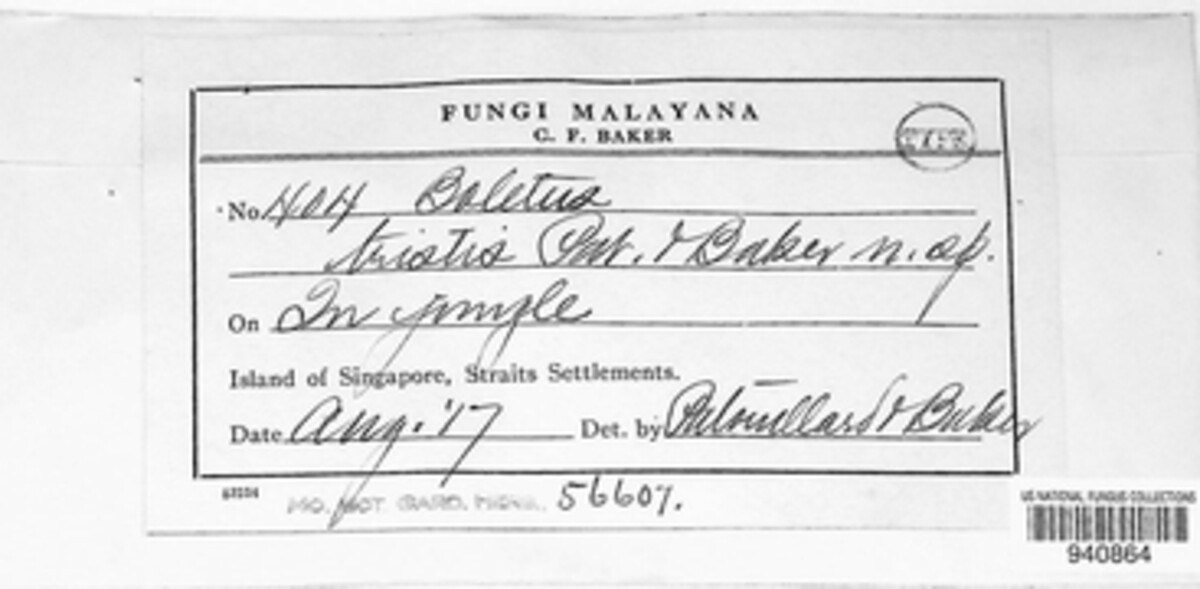 FUNGI MALAYANA
C. F. BAKER
TYPE
No. 404 Boletus
tristis Pat. & Baker n. sp.
On In jungle
Island of Singapore, Straits Settlements.
Date Aug. '17 Det. by Patouillard & Baker
MO. BOT. GARD. HERB. 56607.
US NATIONAL FUNGUS COLLECTIONS
940864